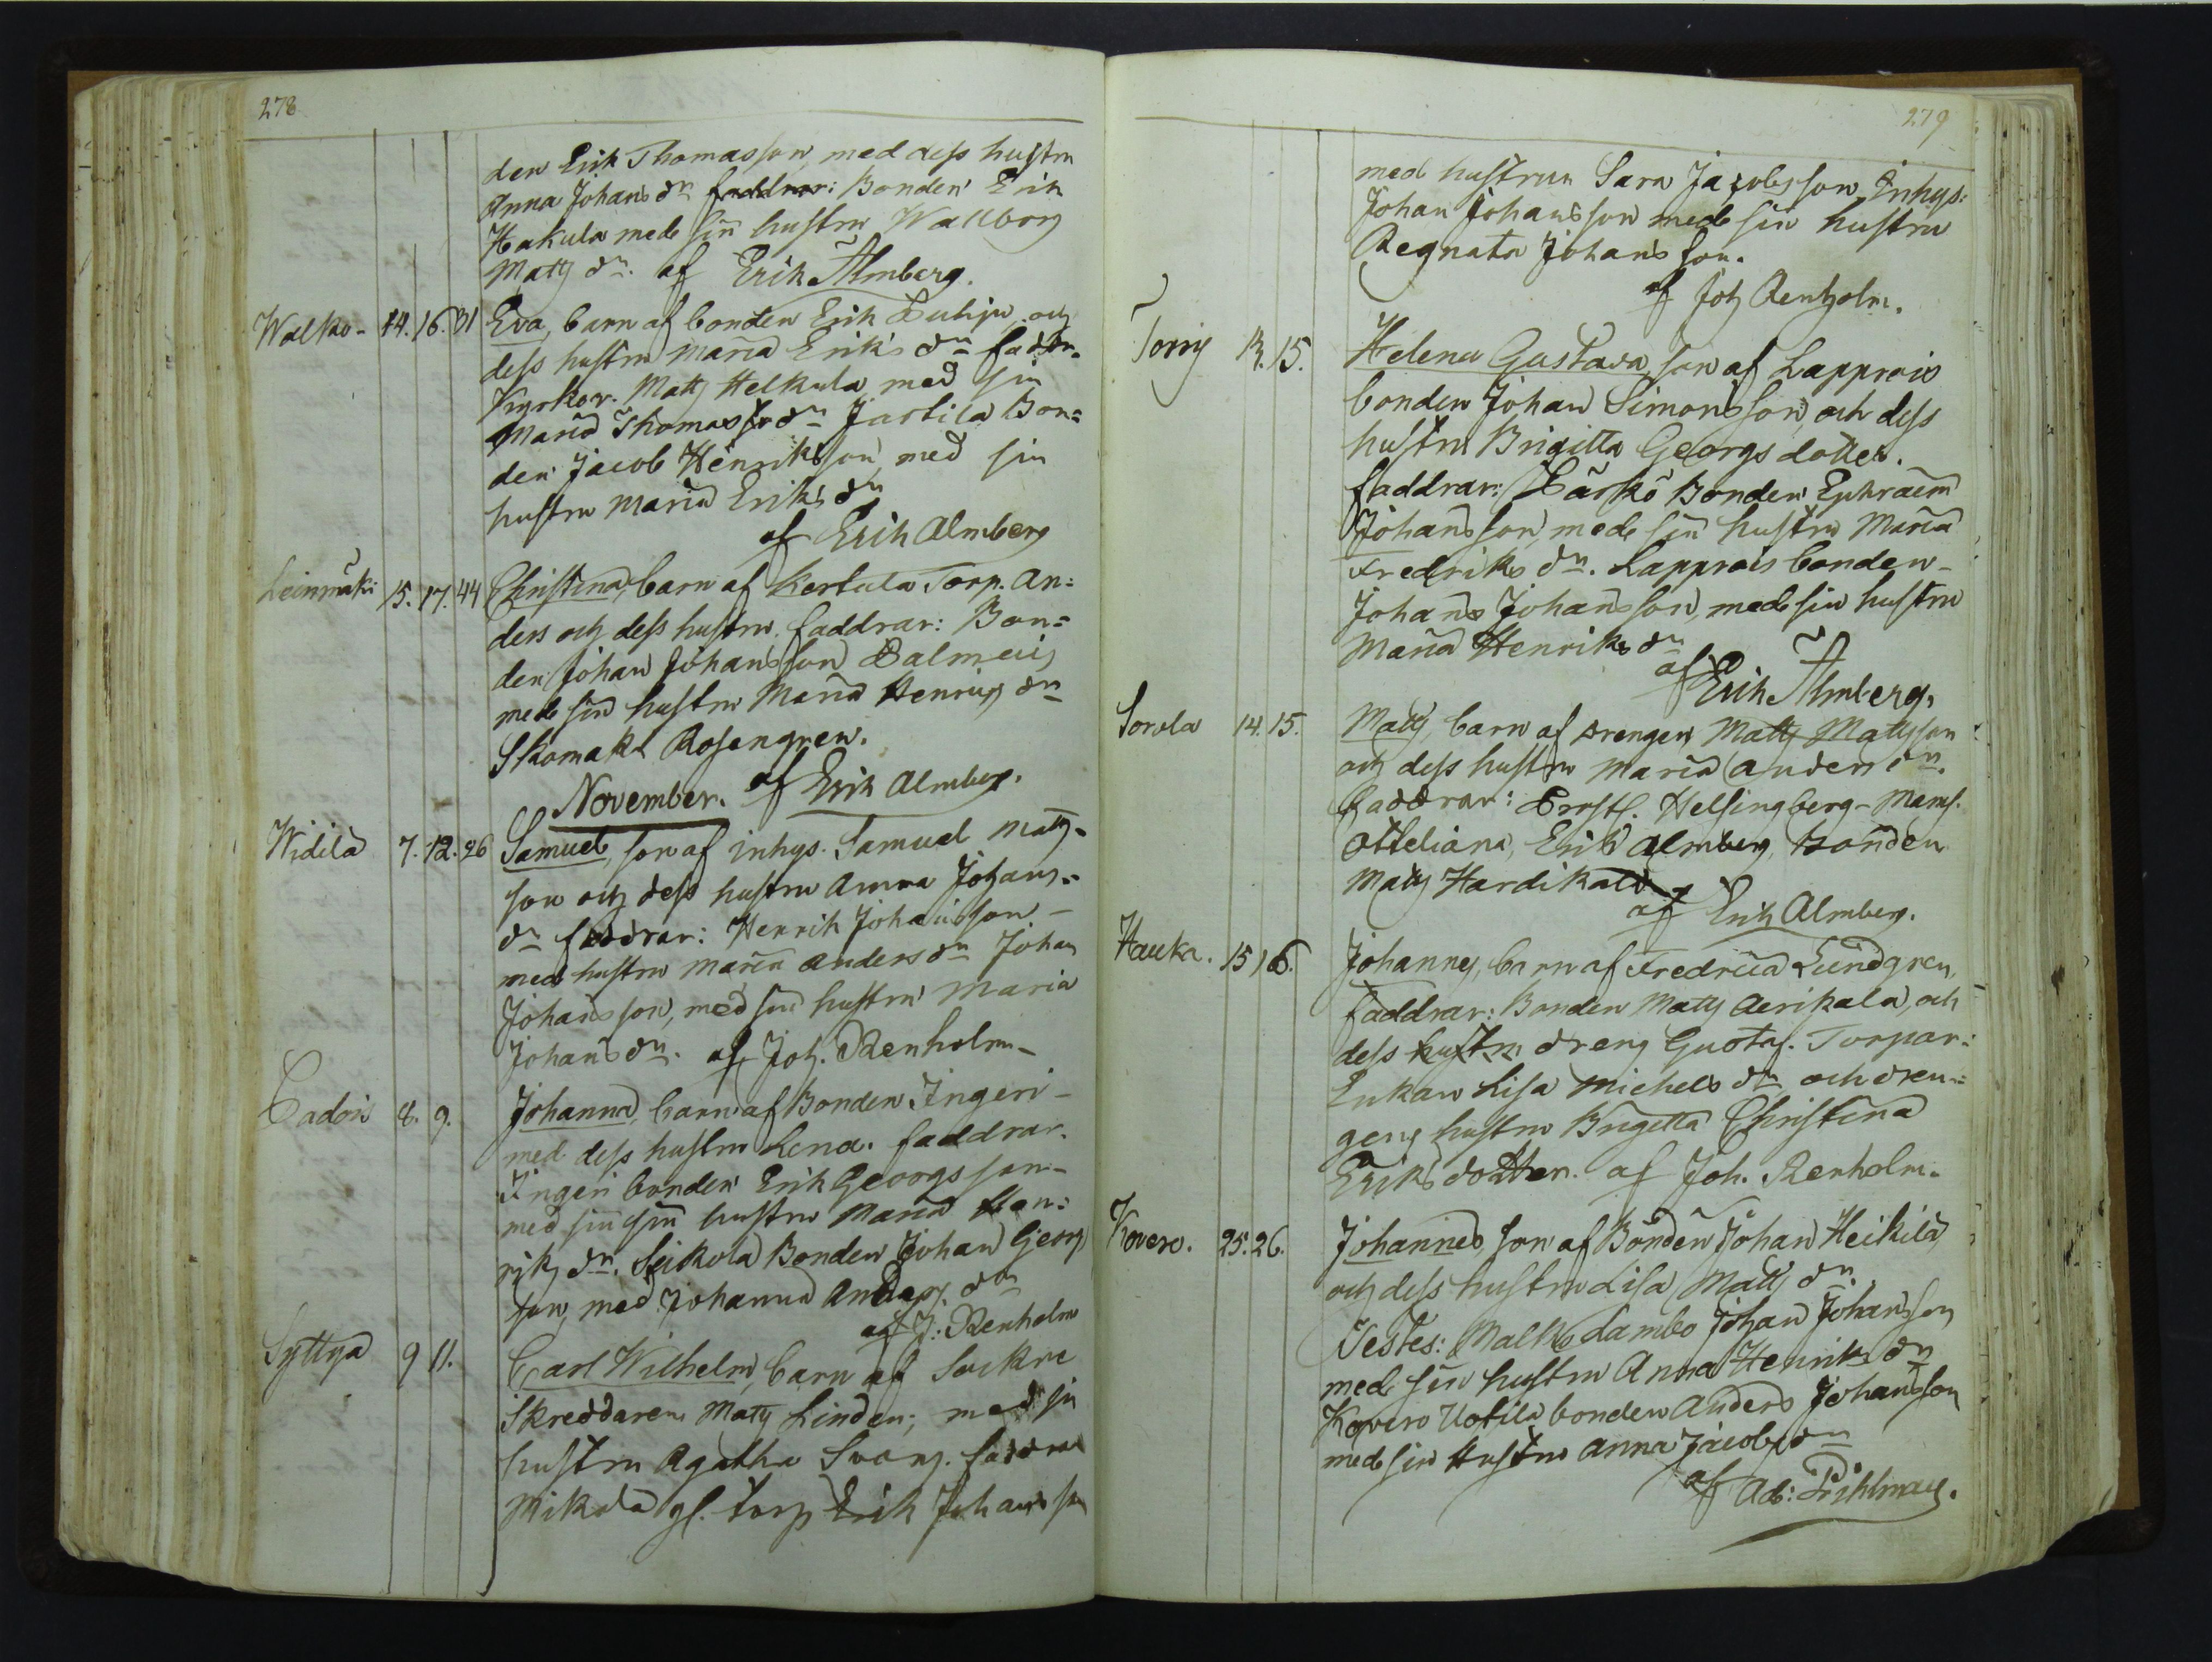 278
den Erik Thomasson, med dess hustru
Anna Johans dr faddrar: Bonden Erik
Hakula med sin hustru Wallborg
Matts dr. af Erik Almberg.
Walko - 14. 16. 31 Eva, barn af bonden Erik och
dess hustru Maria Eriks dr faddr.
Kyrkov. Matts Helkula med sin
Maria Thomas dr Jartila Bon=
den Jacob Henriksson, med sin
hustru Maria Eriks dr
af Erik Almberg
Leinmäki 15. 17. 44 Christina, barn af Kertula Torp. An=
ders och dess hustru. faddrar: Bon=
den Johan Johansson
med sin hustru Maria dr
Skomak. Rosengren.
November. af Erik Almberg.
Widilä 7. 12. 26 Samuel, son af inhys. Samuel Matts-
son och dess hustru Anna Johans-
dr faddrar: Henrik Johansson -
med hustru Maria Anders dr Johan
Johansson, med sin hustru Maria
Johans dr. af Joh. Renholm -
8. 9. Johanna, barn af Bonden Ingeri -
med dess hustru Lena. faddrar.
Ingeri bonden Erik Georgsson -
med sin sin hustru Maria Hen=
riks dr. Seikola Bonden Johan Georg
son, med Johanna Anders dr
af J: Renholm
Syttya 9 11. Carl Wilhelm, barn af
Skreddaren Matts Linden; med sin
hustru Agatha faddrar
Mikola gl. torp Erik Johansson
279
med hustrun Sara Jacobsson, Inhys:
Johan Johansson med sin hustru
Regnata Johansson.
af Joh Renholm.
13. 15. Helena Gustava, son af Lapprois
bonden Johan Simonsson, och dess
hustru Brigitta Georgs dotter.
faddrar: Bonden Ephraem
Johansson, med sin hustru Maria
Fredriks dr. Lapprois bonden -
Johans Johansson, med sin hustru
Maria Henriks dr
af Erik Almberg.
Sorola 14. 15. Matts, barn af drengen Matts Mattsson
och dess hustru Maria Anders dr.
faddrar: Helsingberg - Mams.
Otteliana, Erik Almberg, Bonden
Matts Hardikala
af Erik Almberg.
Hauka. 15 16. Johannes, barn af Fredrica Lundgren,
faddrar: Bonden Matts Aerikala, och
dess hustru dreng Gustaf. Torpar:
Enkan Lisa Michels dr och dren=
gens hustru Brigetta Christina
Eriks dotter. af Joh. Renholm.
Kovero. 25. 26. Johannes, son af Bonden Johan Heikilä
och dess hustru Lisa Matts dr.
Testes: Malko Lambo Johan Johansson
med sin hustru Anna Henriks dr
Kovero Uotila bonden Anders Johansson
med sin Hustru Anna Jacobs dr
af Ad: